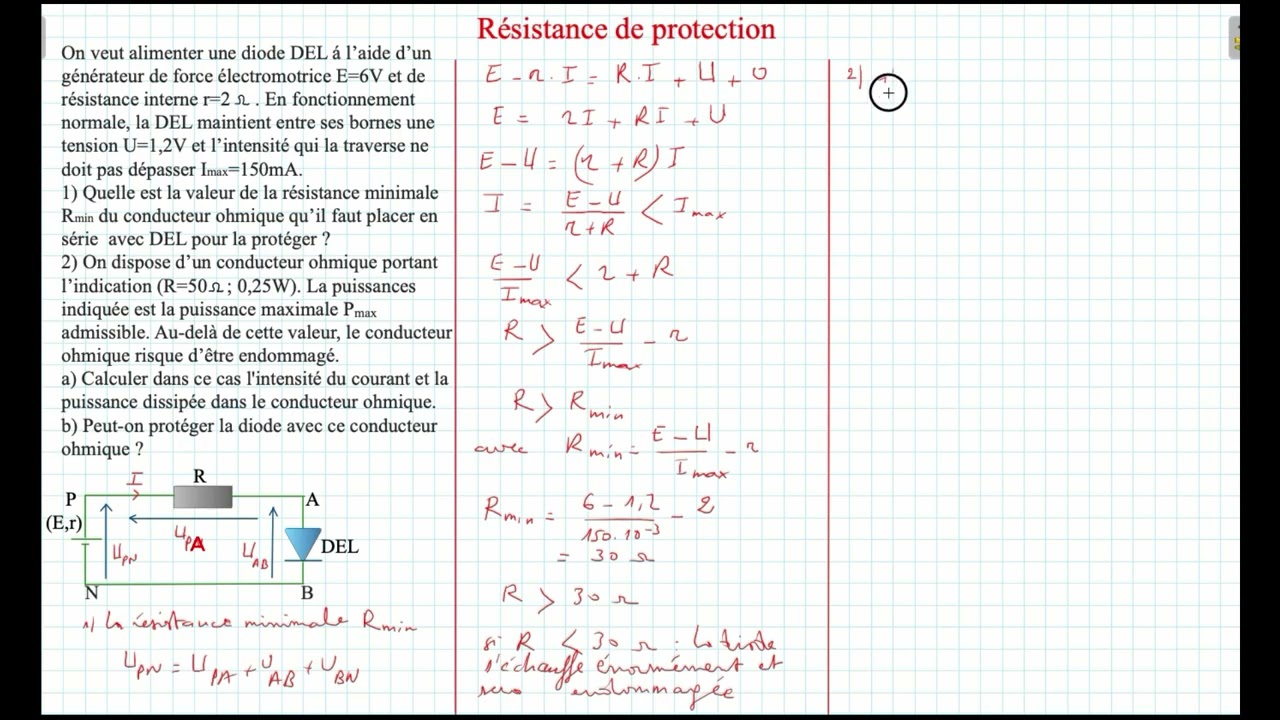 Résistance de protection
On veut alimenter une diode DEL á l’aide d’un
générateur de force électromotrice E=6V et de
résistance interne r=2 Ω . En fonctionnement
normale, la DEL maintient entre ses bornes une
tension U=1,2V et l’intensité qui la traverse ne
doit pas dépasser Imax=150mA.
1) Quelle est la valeur de la résistance minimale
Rmin du conducteur ohmique qu’il faut placer en
série avec DEL pour la protéger ?
2) On dispose d’un conducteur ohmique portant
l’indication (R=50Ω ; 0,25W). La puissances
indiquée est la puissance maximale Pmax
admissible. Au-delà de cette valeur, le conducteur
ohmique risque d’être endommagé.
a) Calculer dans ce cas l'intensité du courant et la
puissance dissipée dans le conducteur ohmique.
b) Peut-on protéger la diode avec ce conducteur
ohmique ?
I
R
P
A
(E,r)
UPN
UPA
UAB
DEL
N
B
1) La résistance minimale Rmin
UPN = UPA + UAB + UBN
E - r . I = R.I + U + 0
E = rI + RI + U
E - U = (r + R) I
I = E - U / r + R < Imax
E - U / Imax < r + R
R > E - U / Imax - r
R > Rmin
avec Rmin = E - U / Imax - r
Rmin = 6 - 1,2 / 150.10⁻³ - 2
= 30 Ω
R > 30 Ω
si R < 30 Ω : la diode
s'échauffe énormément et
sera endommagée
2)